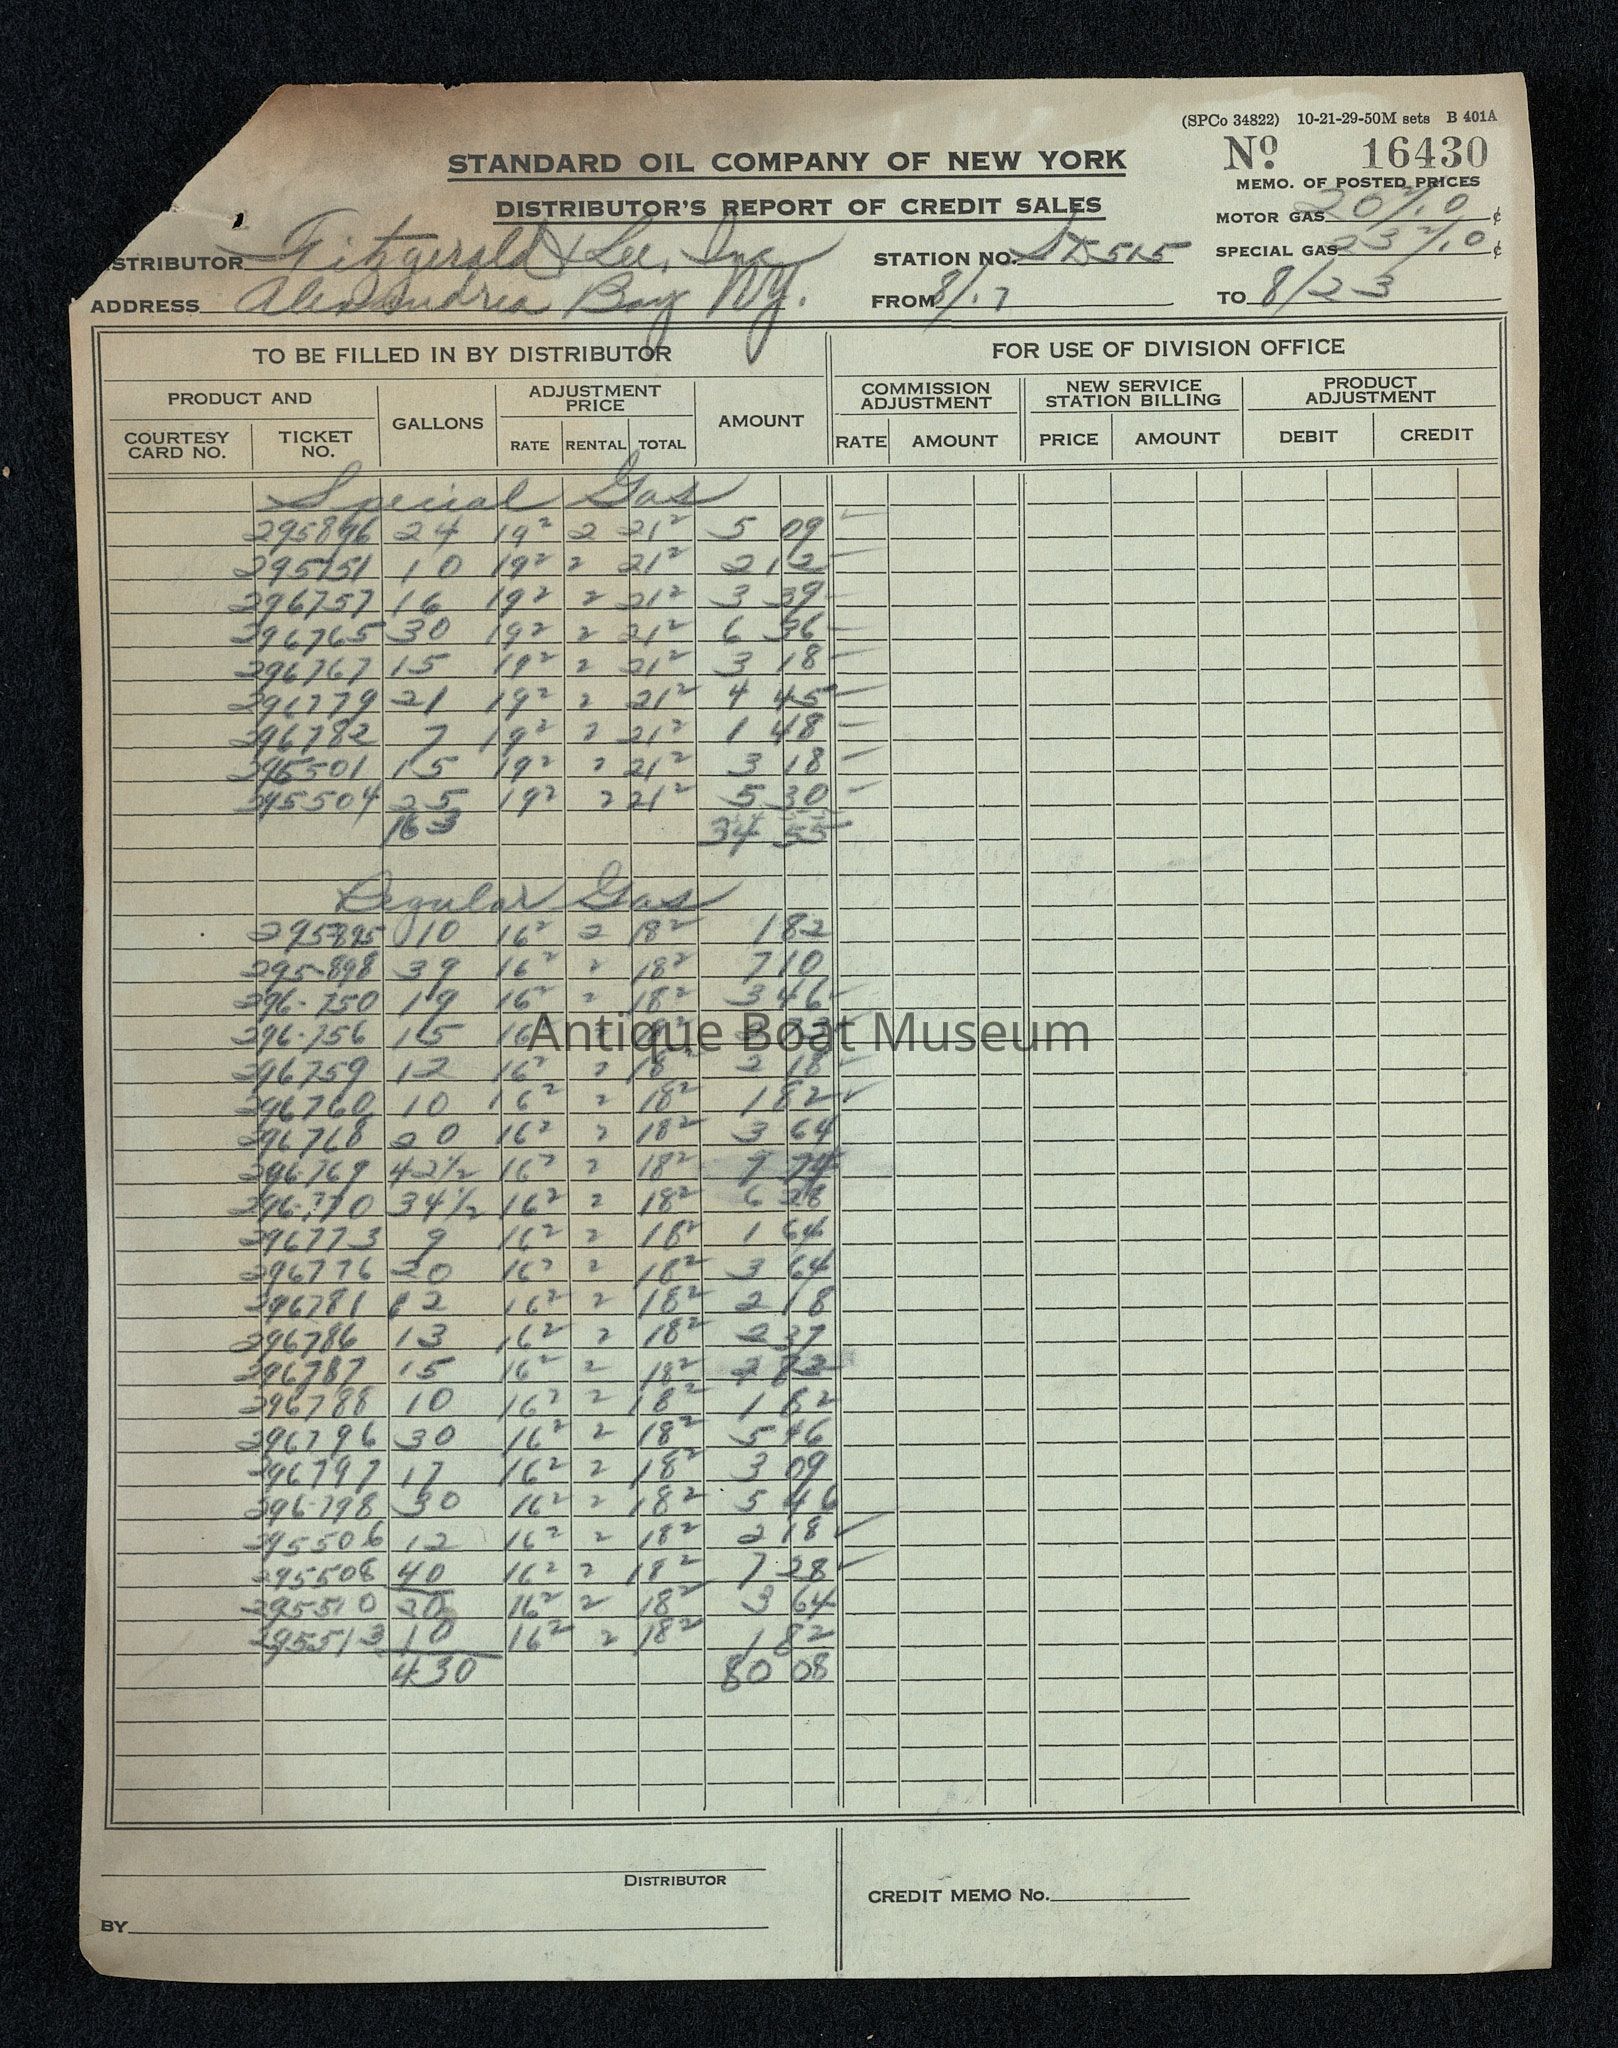 (SPCo 34822) 10-21-29-50M sets B 401A
STANDARD OIL COMPANY OF NEW YORK
Nº 16430
DISTRIBUTOR'S REPORT OF CREDIT SALES
MEMO. OF POSTED PRICES
MOTOR GAS 20 2/10 ¢
SPECIAL GAS 23 2/10 ¢
STRIBUTOR Fitzgerald & Lee, Inc
STATION NO. SD 515
ADDRESS Alexandria Bay NY.
FROM 8/17 TO 8/23
TO BE FILLED IN BY DISTRIBUTOR
FOR USE OF DIVISION OFFICE
PRODUCT AND
COURTESY CARD NO.
TICKET NO.
GALLONS
ADJUSTMENT PRICE
RATE RENTAL TOTAL
AMOUNT
COMMISSION ADJUSTMENT
RATE AMOUNT
NEW SERVICE STATION BILLING
PRICE AMOUNT
PRODUCT ADJUSTMENT
DEBIT CREDIT
Special Gas
295896 24 19² 2 21² 5 09
295751 10 19² 2 21² 2 12
296757 16 19² 2 21² 3 39
296765 30 19² 2 21² 6 36
296767 15 19² 2 21² 3 18
296779 21 19² 2 21² 4 45
296782 7 19² 2 21² 1 48
295501 15 19² 2 21² 3 18
295504 25 19² 2 21² 5 30
163 34 55
Regular Gas
295895 10 16² 2 18² 1 82
295-898 39 16² 2 18² 7 10
296-750 19 16² 2 18² 3 46
296-756 15 16² 2 18²
Antique Boat Museum
296759 12 16² 2 18² 2 18
296760 10 16² 2 18² 1 82
296768 20 16² 2 18² 3 64
296-769 42½ 16² 2 18² 7 74
296-770 34½ 16² 2 18² 6 28
296773 9 16² 2 18² 1 64
296776 20 16² 2 18² 3 64
296781 12 16² 2 18² 2 18
296786 13 16² 2 18² 2 37
296787 15 16² 2 18²
296788 10 16² 2 18² 1 82
296796 30 16² 2 18² 5 46
296797 17 16² 2 18² 3 09
296-798 30 16² 2 18² 5 46
295506 12 16² 2 18² 2 18
295508 40 16² 2 18² 7 28
295510 20 16² 2 18² 3 64
295513 10 16² 2 18² 1 82
430 80 08
DISTRIBUTOR
CREDIT MEMO NO.
BY